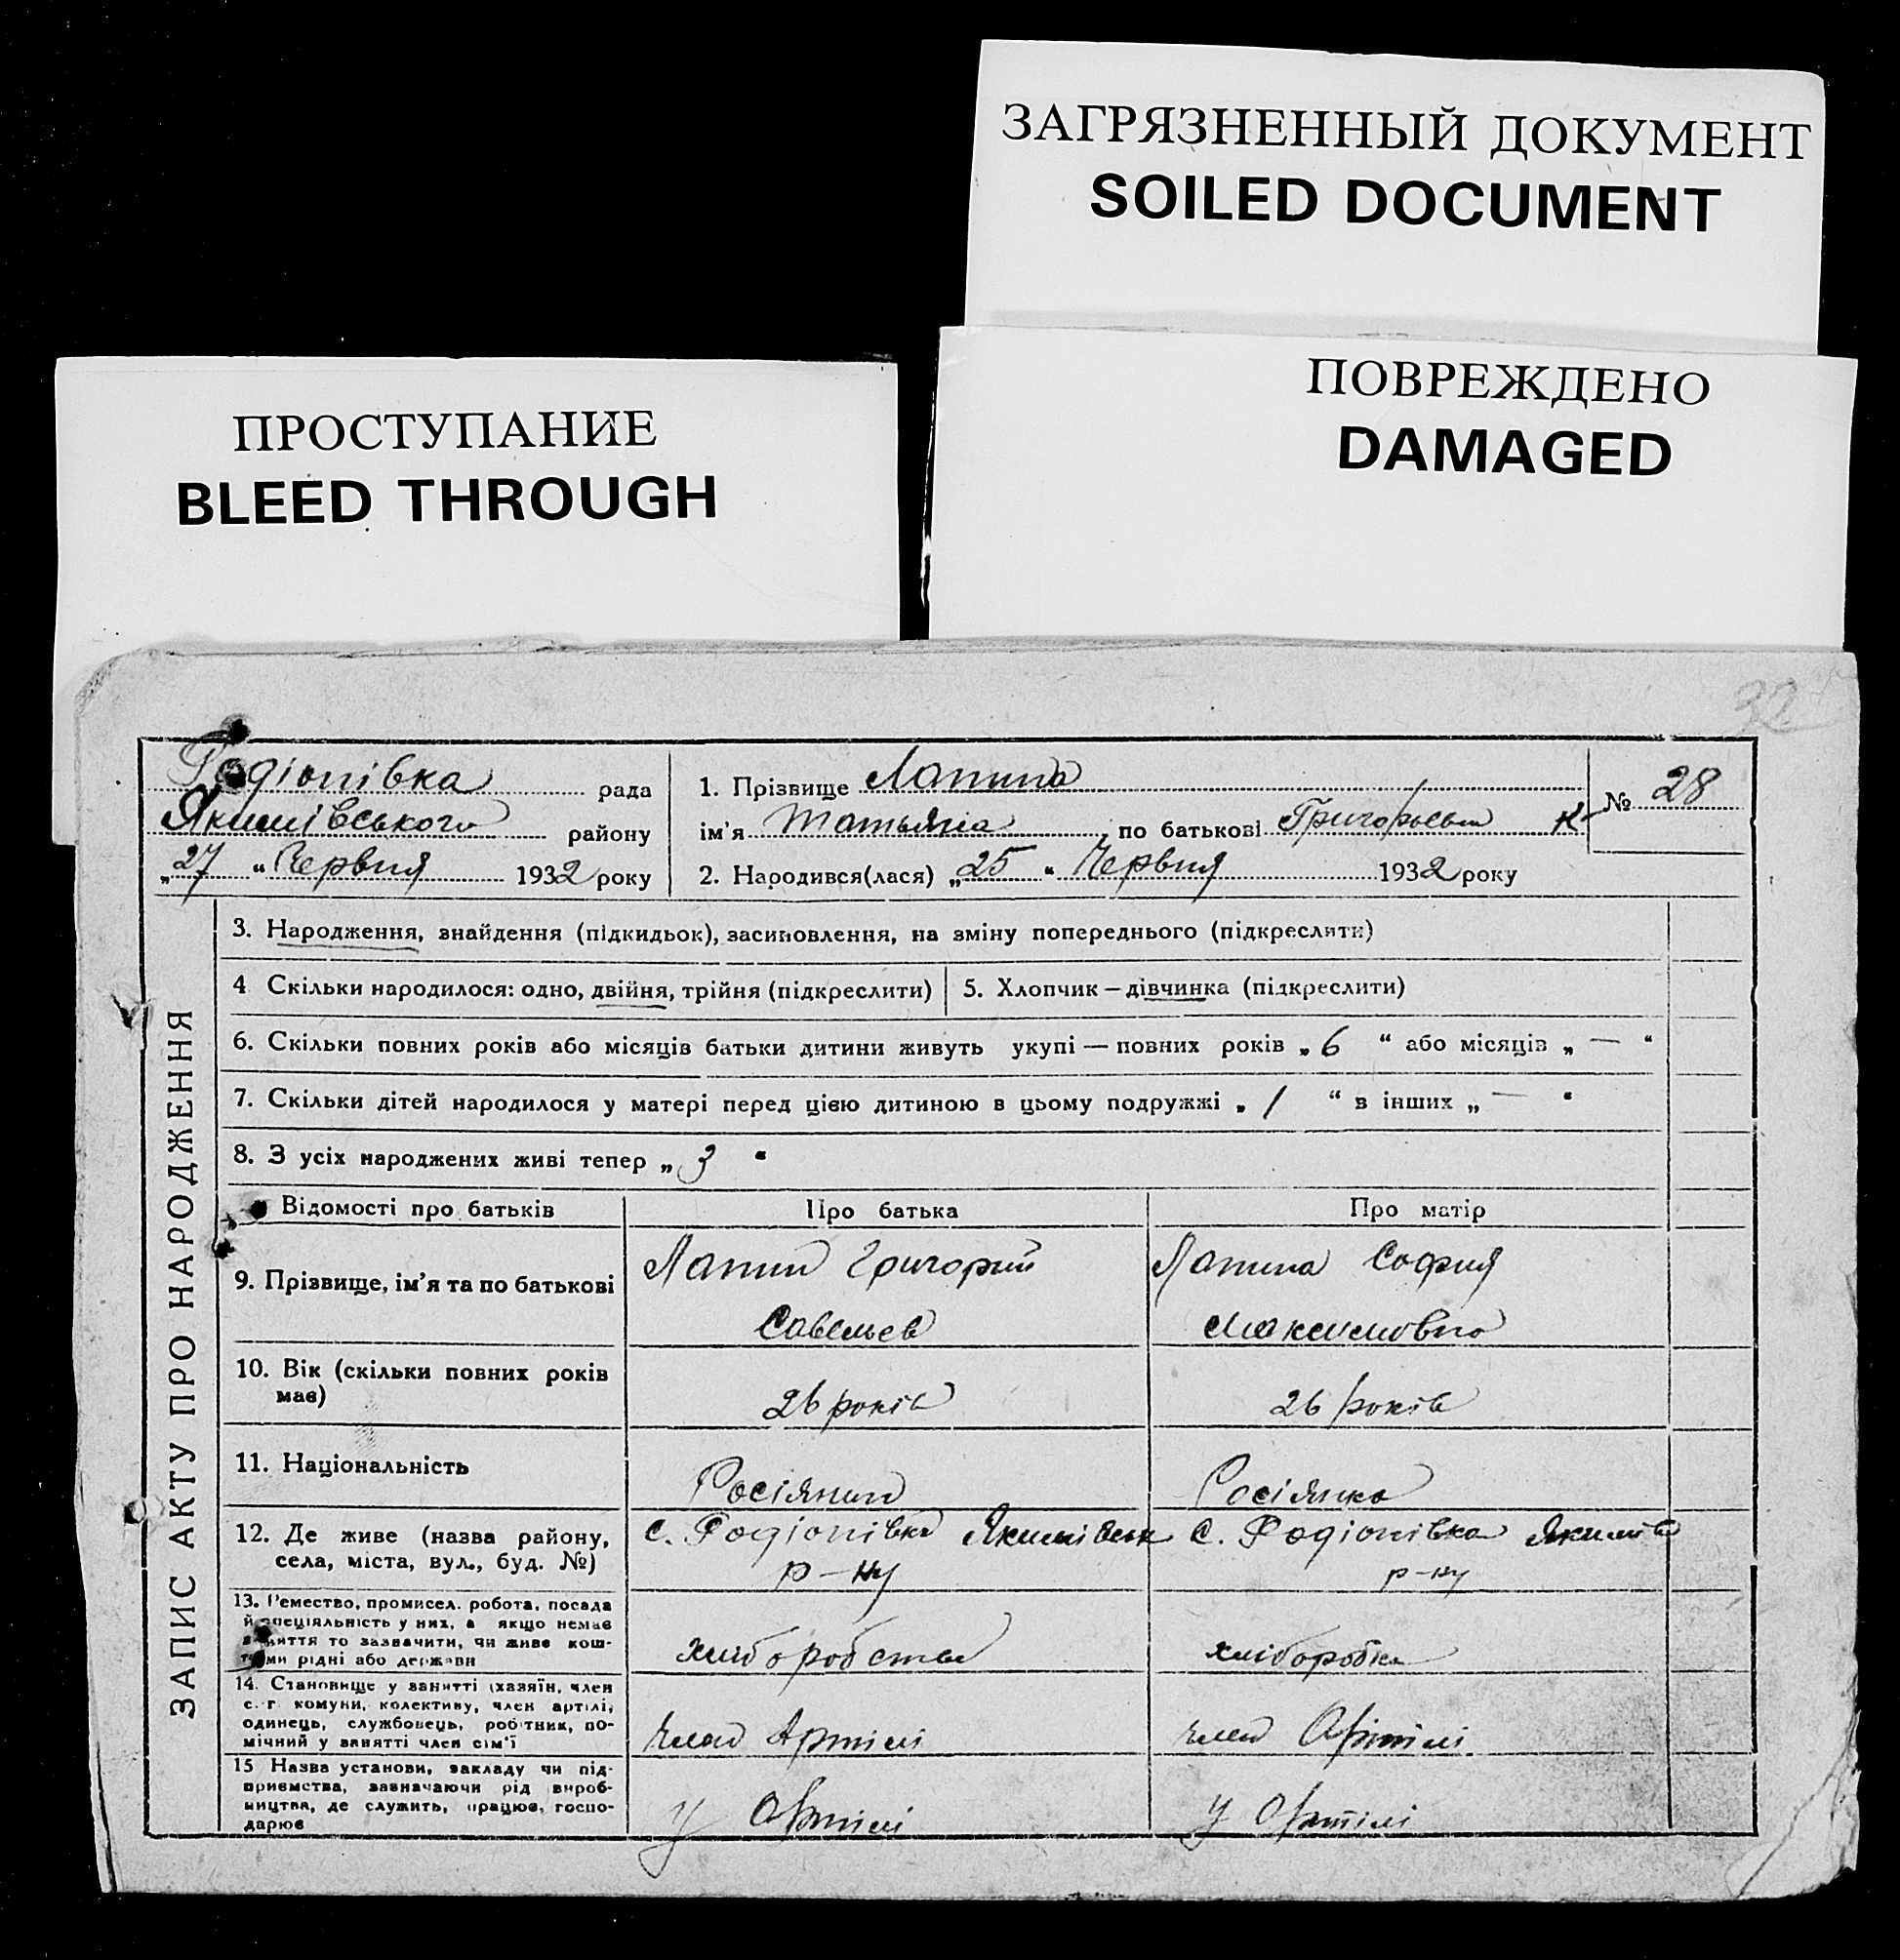 ЗАГРЯЗНЕННЫЙ ДОКУМЕНТ
SOILED DOCUMENT
ПОВРЕЖДЕНО
DAMAGED
ПРОСТУПАНИЕ
BLEED THROUGH
32
Родіонівка рада
Якимівського району
„27 “ Червня 1932 року
1. Прізвище Лапина
ім'я Татьяна по батькові Григорьевн
№ 28
2. Народився(лася) „25 “ Червня 1932 року
ЗАПИС АКТУ ПРО НАРОДЖЕННЯ
3. Народження, знайдення (підкидьок), засиновлення, на зміну попереднього (підкреслити)
4 Скільки народилося: одно, двійня, трійня (підкреслити)
5. Хлопчик — дівчинка (підкреслити)
6. Скільки повних років або місяців батьки дитини живуть укупі — повних років „ 6 “ або місяців „ — “
7. Скільки дітей народилося у матері перед цією дитиною в цьому подружжі „ 1 “ в інших „ — “
8. З усіх народжених живі тепер „ 3 “
Відомості про батьків
Про батька
Про матір
9. Прізвище, ім'я та по батькові
Лапин Григорий
Савельев
Лапина София
Максимовна
10. Вік (скільки повних років
має)
26 років
26 років
11. Національність
Росіянин
Росіянка
12. Де живе (назва району,
села, міста, вул., буд. №)
с. Родіонівка Якимівськ
р-ну
с. Родіонівка Якимів
р-ну
13. Ремество, промисел. робота, посада
й спеціяльність у них, а якщо немає
заняття то зазначити, чи живе кош-
тами рідні або держави
хліборобства
хліборобка
14. Становище у занятті (хазяїн, член
с.-г комуни, колективу, член артілі,
одинець, службовець, робітник, по-
мічний у занятті член сім'ї
член Артілі
член Артілі
15 Назва установи, закладу чи під-
приємства, зазначаючи рід вироб-
ництва, де служить, працює, госпо-
дарює
У Артілі
У Артілі